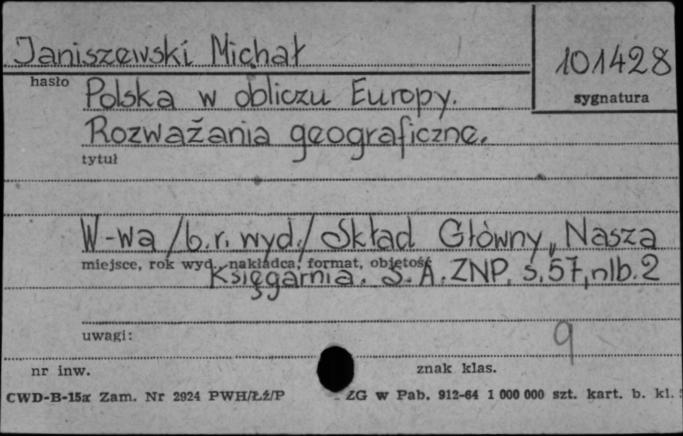 Janiszewski Michał
101428
hasło
sygnatura
Polska w obliczu Europy.
Rozważania geograficzne.
tytuł
W-wa /b.r. wyd./ Skład Główny „Nasza
miejsce, rok wyd., nakładca, format, objętość
Księgarnia. S.A. ZNP. s. 57, nlb. 2
uwagi:
9
nr inw.
znak klas.
CWD-B-15a Zam. Nr 2924 PWH/Łź/P
ZG w Pab. 912-64 1 000 000 szt. kart. b. kl.